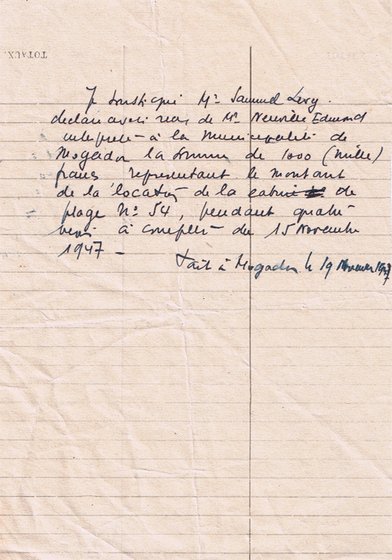 TOTAUX
Je soussigné Mr Samuel Levy
déclare avoir reçu de Mr Neuville Edmond
interprète à la Municipalité de
Mogador la somme de 1000 (mille)
francs représentant le montant
de la location de la cabine de
plage No 54, pendant quatre
mois à compter du 15 Novembre
1947 -
Fait à Mogador le 19 Novembre 1947